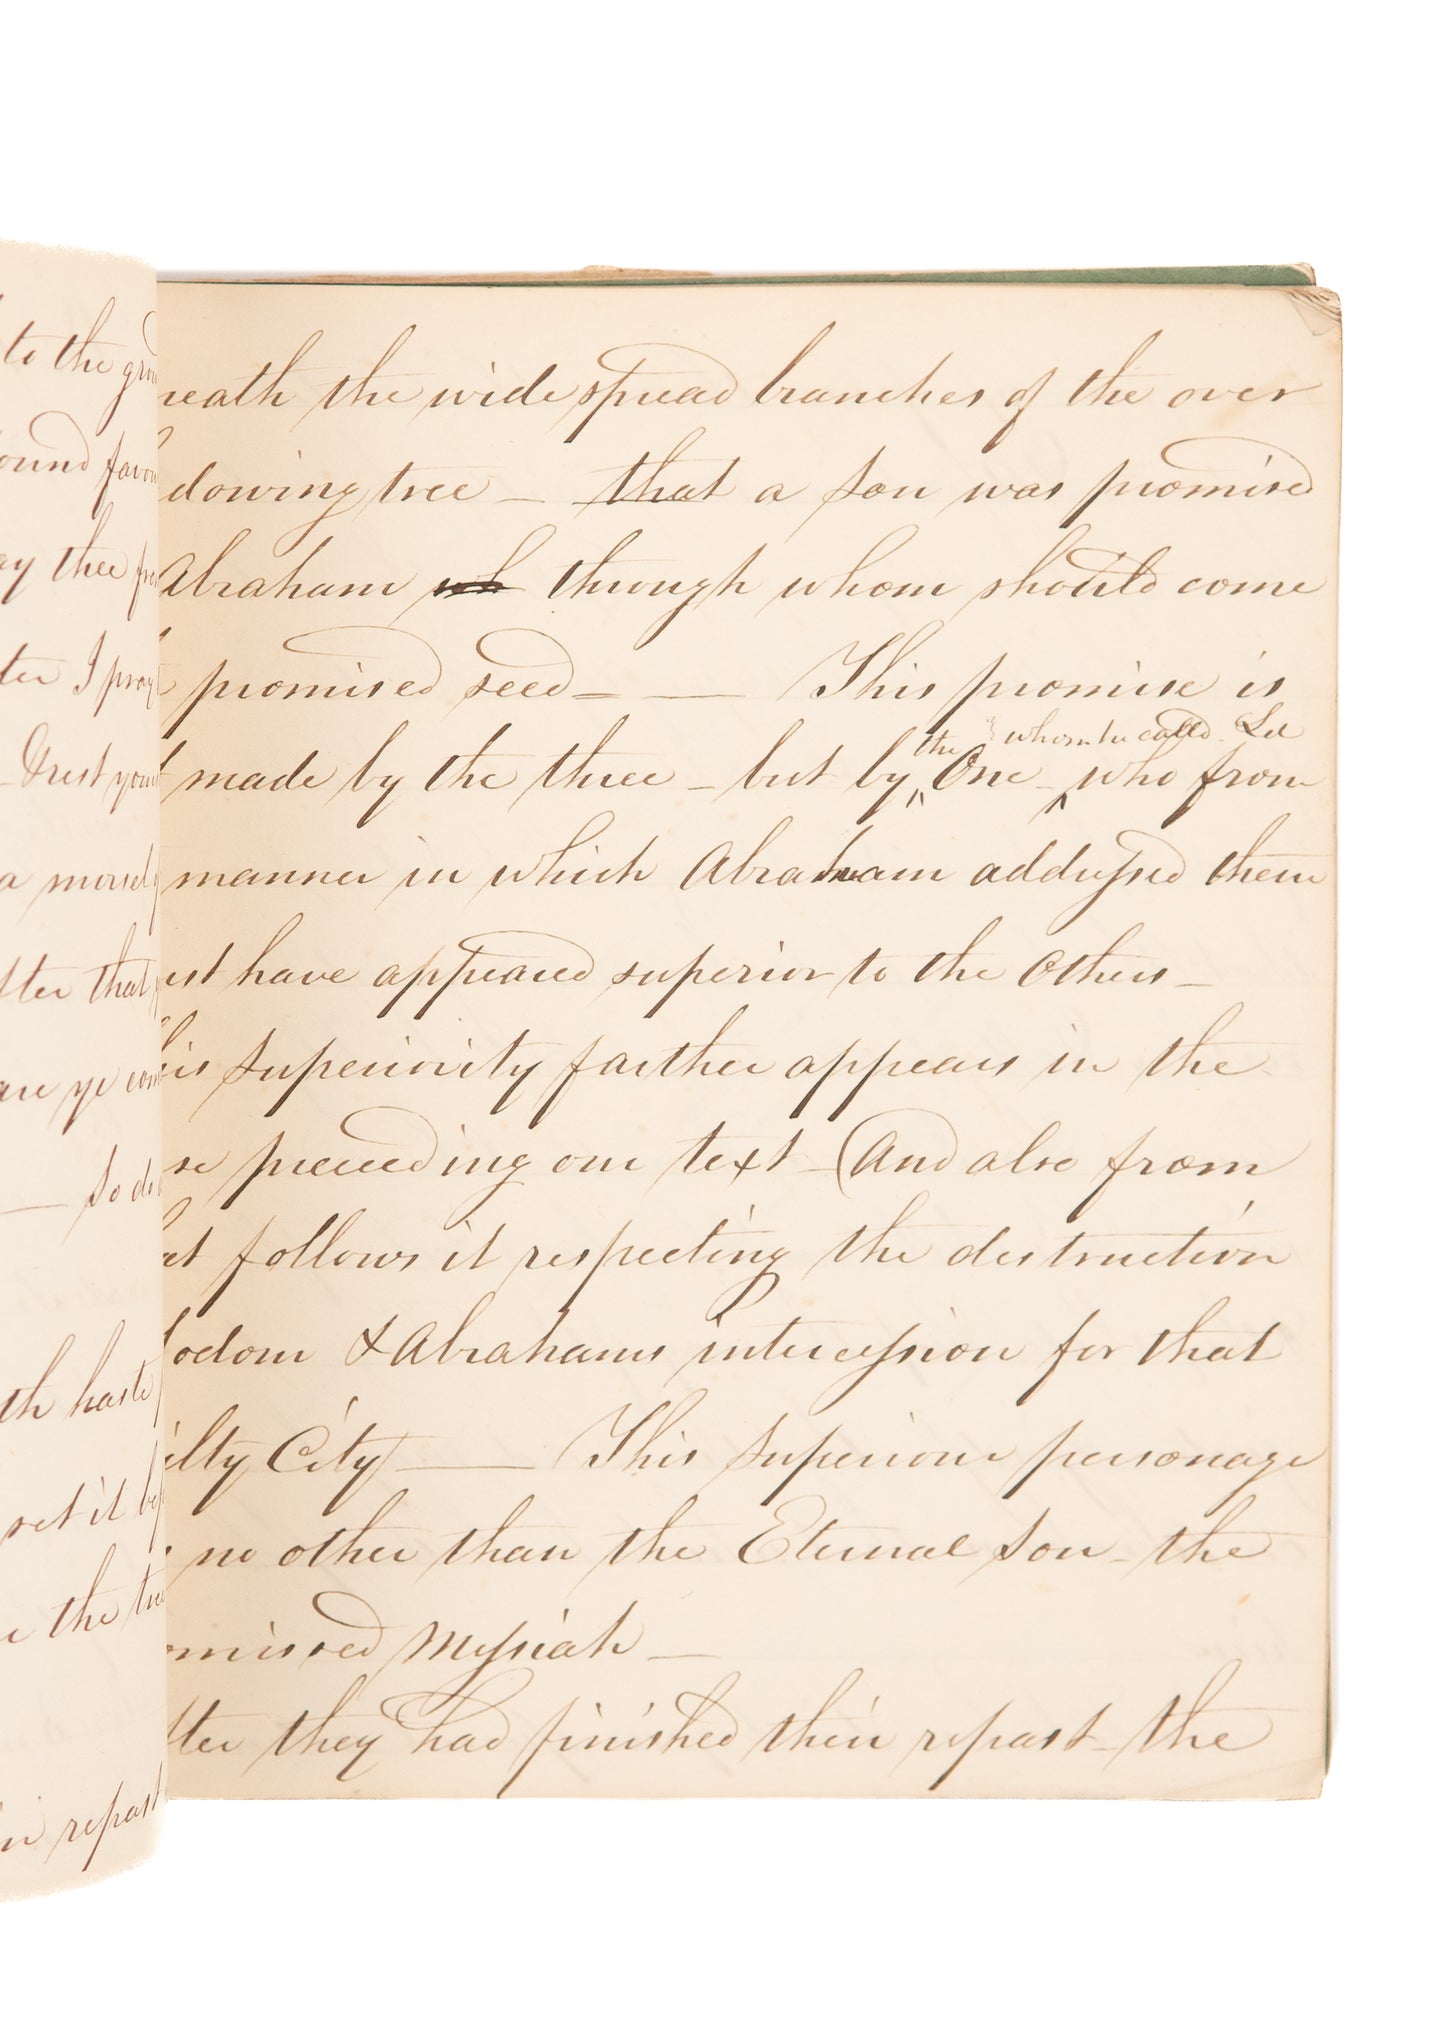 to the grou
ound favou
ay thee fro
ter I pray
rest your
a morsel
fter that
are ye com
— So do
th haste
set it bef
e the tree
in repast
neath the wide spread branches of the over
dowing tree — that a Son was promised
Abraham wh through whom should come
promised seed — — This promise is
the whom he called
made by the three — but by One — who from
manner in which Abraham addressed them
ust have appeared superior to the Others —
his Superiority farther appears in the
se preceeding our text — (And also from
at follows it respecting the destruction
Sodom & Abrahams intercession for that
ilty City) — This Superiour personage
no other than the Eternal Son — the
omissed Messiah —
fter they had finished their repast — the